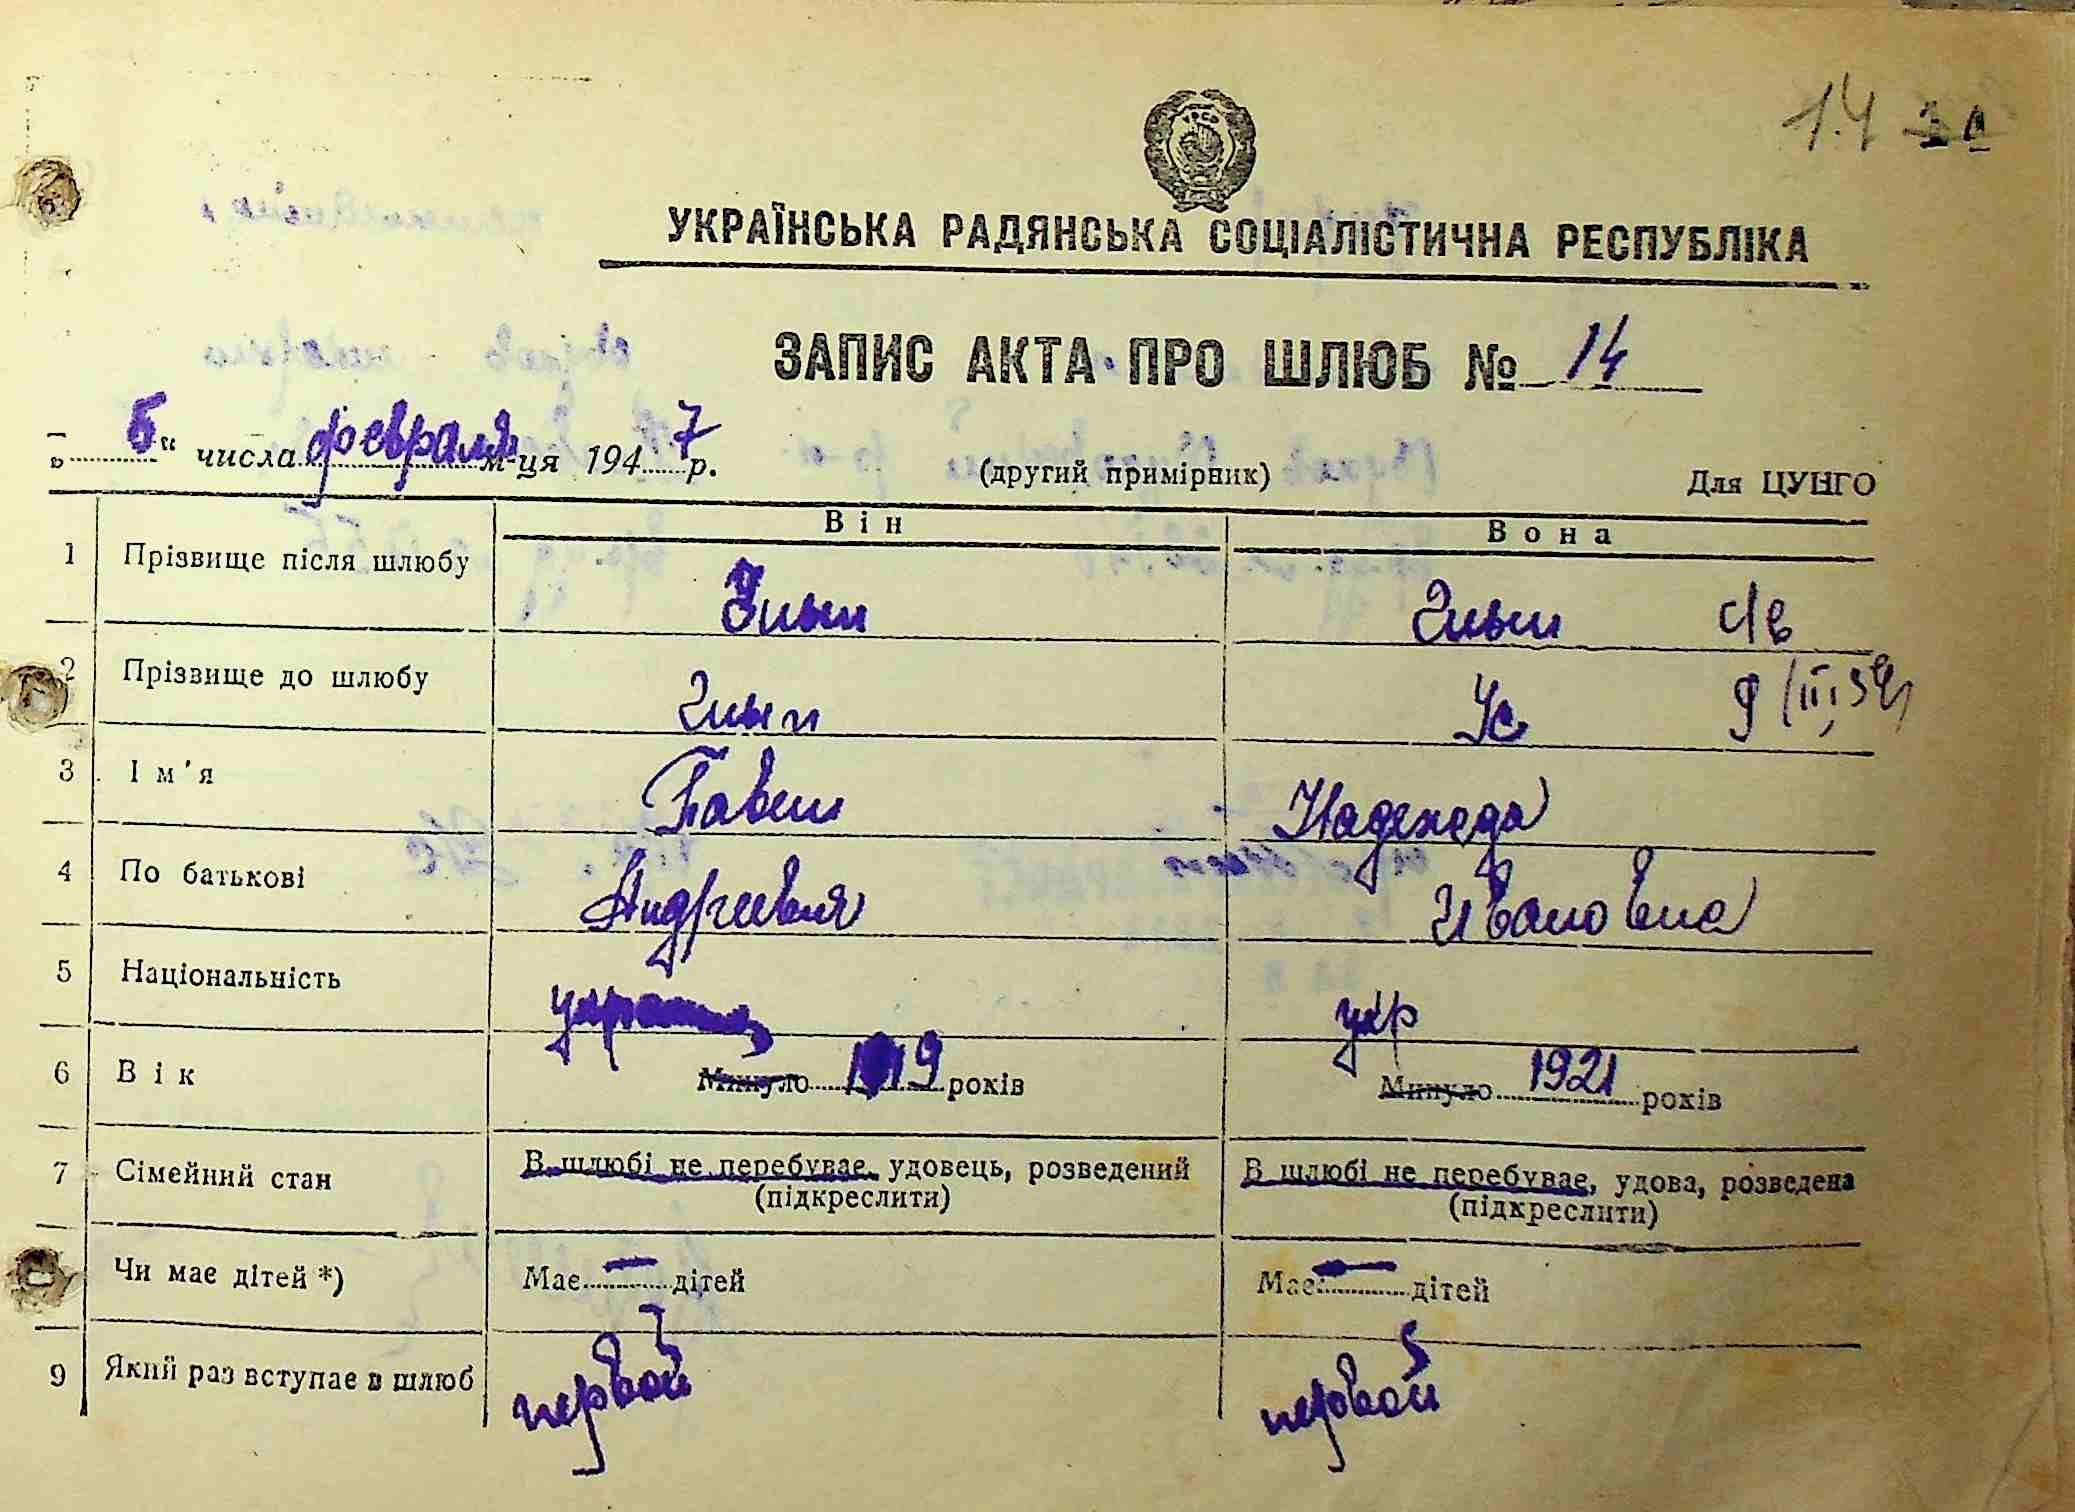 14
УКРАЇНСЬКА РАДЯНСЬКА СОЦІАЛІСТИЧНА РЕСПУБЛІКА
ЗАПИС АКТА ПРО ШЛЮБ № 14
„5“ числа февраля м-ця 1947 р. (другий примірник) Для ЦУНГО
Він Вона
1 Прізвище після шлюбу
2 Прізвище до шлюбу Ус
3 Ім'я Павел Надежда
4 По батькові Ивановна
5 Національність укр
6 Вік Минуло 1919 років Минуло 1921 років
7 Сімейний стан В шлюбі не перебуває, удовець, розведений В шлюбі не перебуває, удова, розведена
(підкреслити) (підкреслити)
Чи має дітей *) Має — дітей Має — дітей
9 Який раз вступає в шлюб первой первой